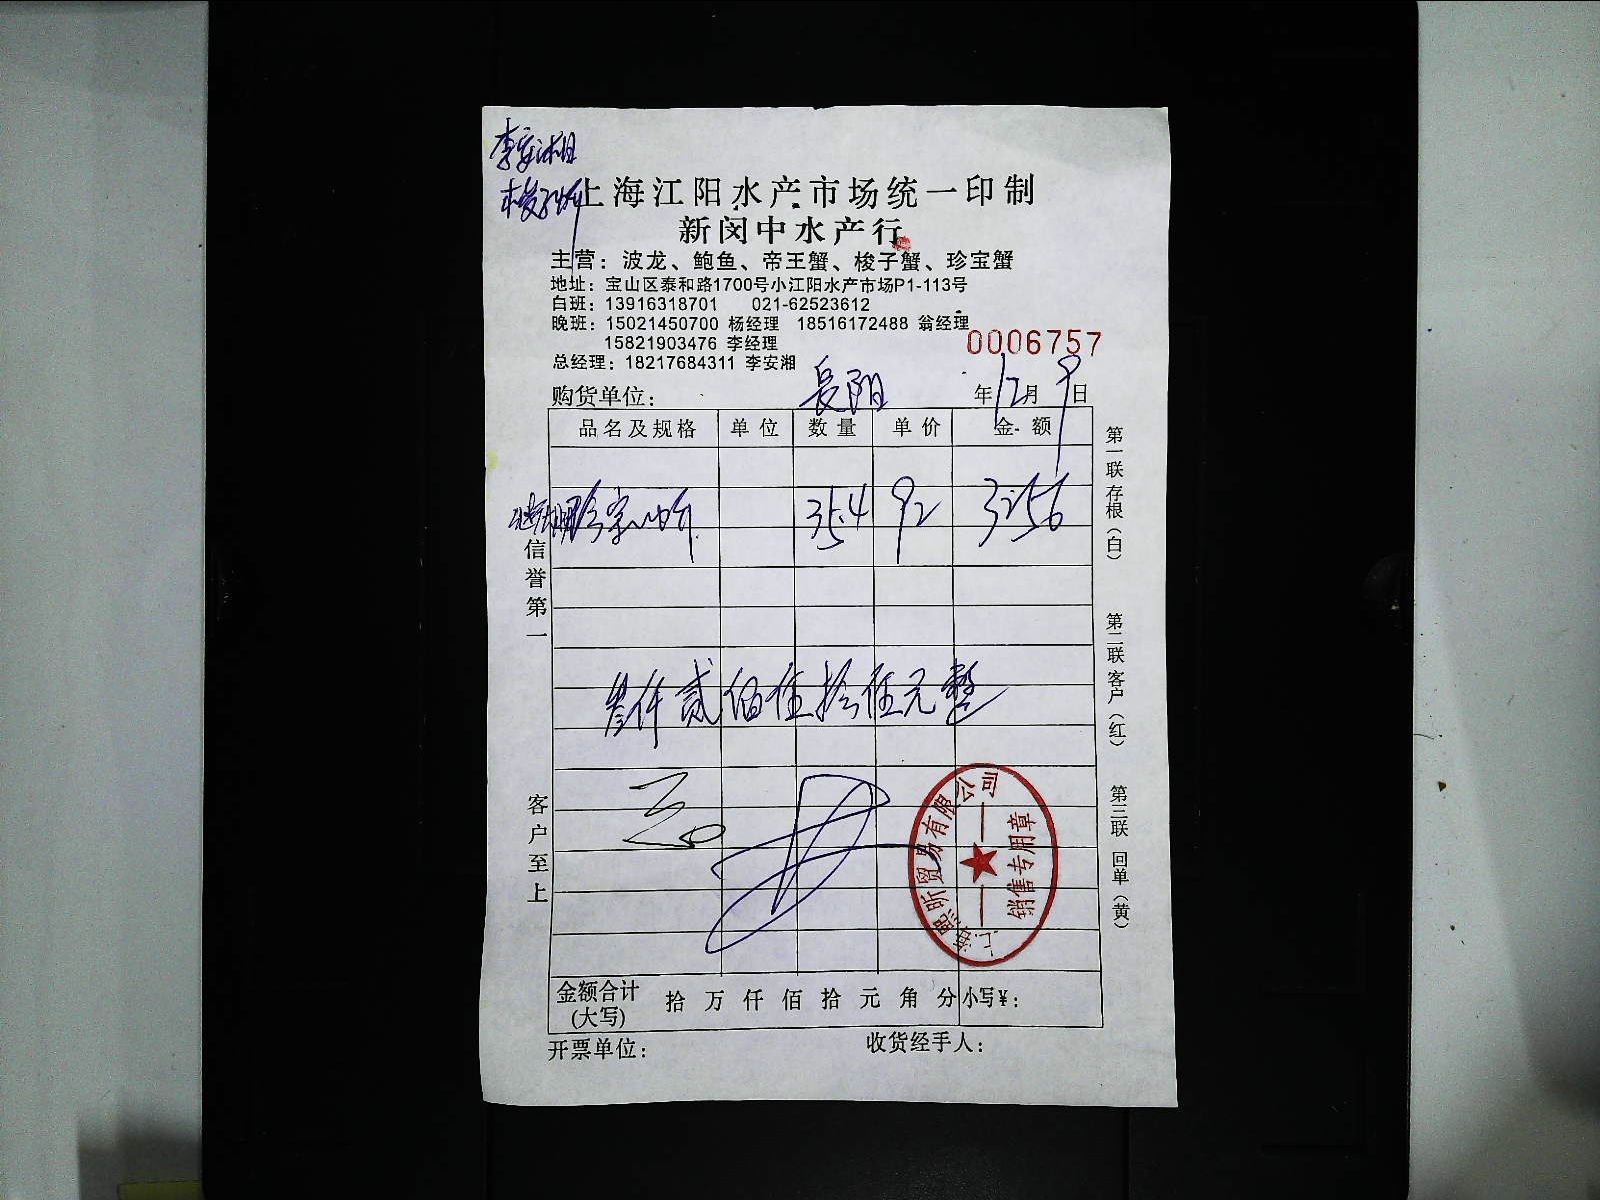 李安湘
梭子蟹
上海江阳水产市场统一印制
新闵中水产行
主营：波龙、鲍鱼、帝王蟹、梭子蟹、珍宝蟹
地址：宝山区泰和路1700号小江阳水产市场P1-113号
白班：13916318701 021-62523612
晚班：15021450700 杨经理 18516172488 翁经理
15821903476 李经理
总经理：18217684311 李安湘
0006757
购货单位： 長阳 年 12月 9日
品名及规格 单位 数量 单价 金额
35.4 92 3256
叁仟贰佰伍拾伍元整
信誉第一
客户至上
第一联 存根（白）
第二联 客户（红）
第三联 回单（黄）
上海熙昕贸易有限公司
销售专用章
金额合计 拾 万 仟 佰 拾 元 角 分 小写¥：
(大写)
开票单位： 收货经手人：